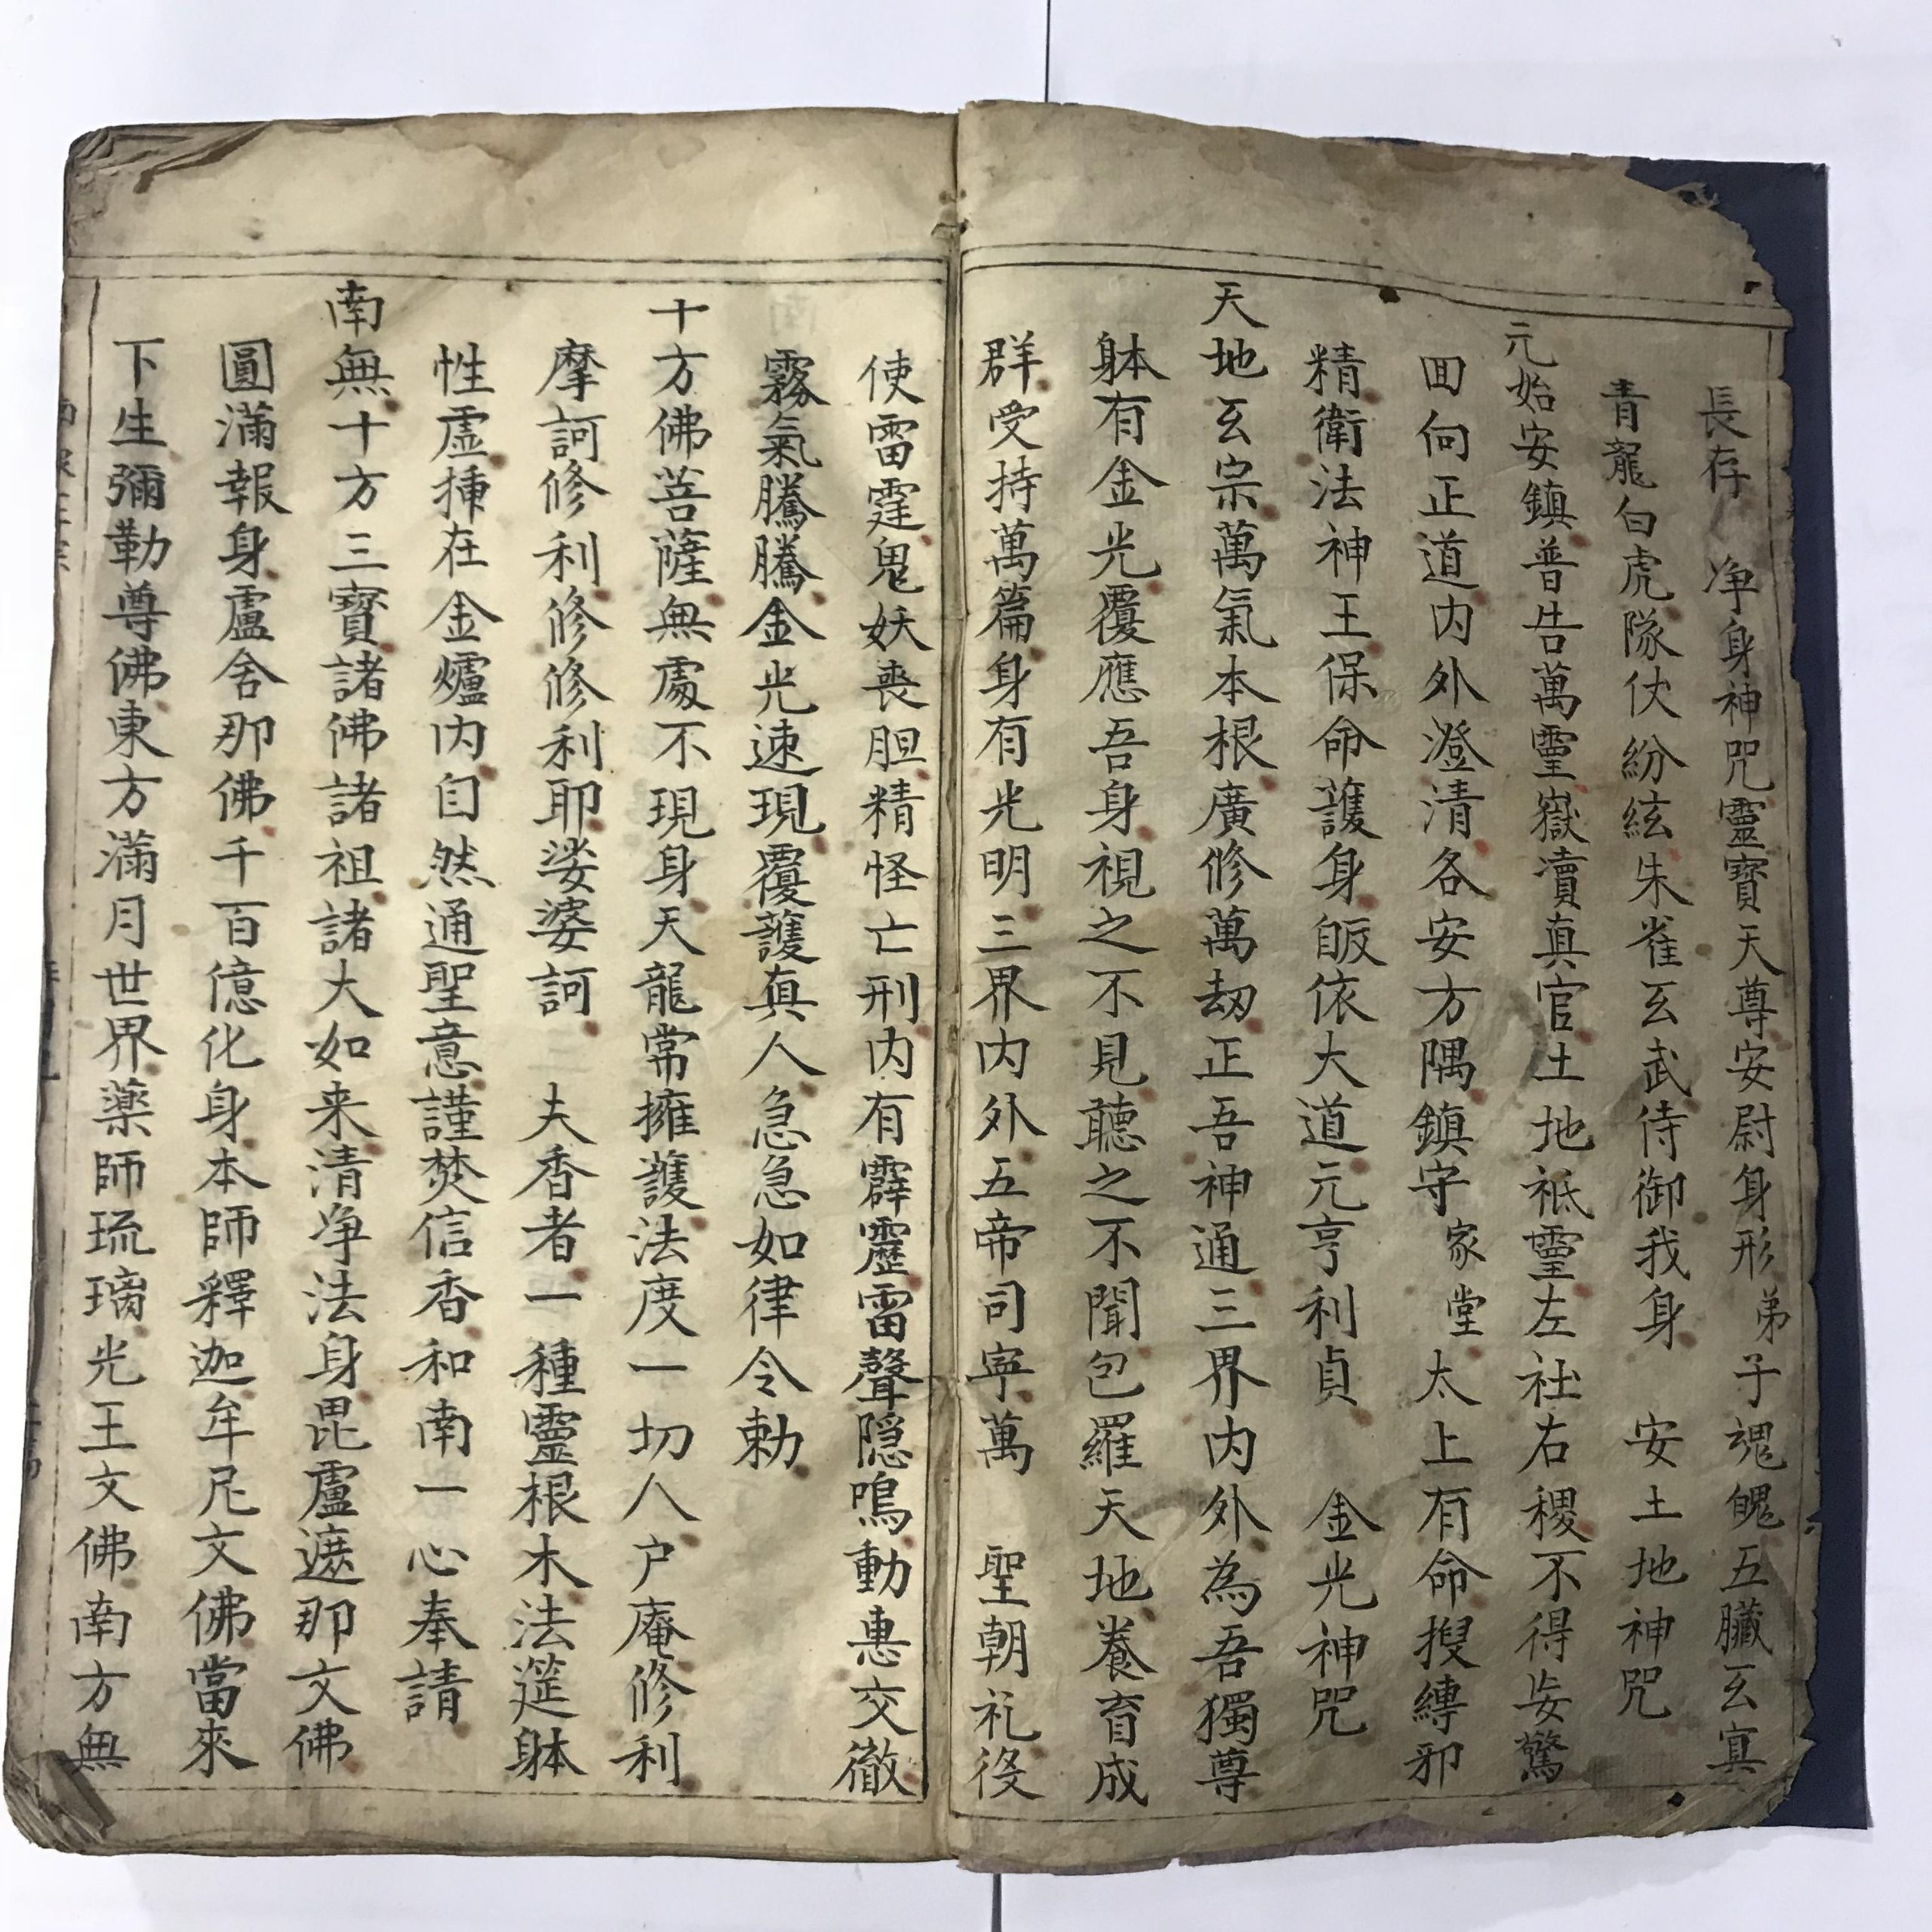 長存　净身神咒靈寶天尊安尉身形弟子魂魄五臟玄冥
青龍白虎隊仗紛紜朱雀玄武侍御我身　安土地神咒
元始安鎮普告萬靈嶽瀆真官土地祇靈左社右稷不得妄驚
回向正道内外澄清各安方隅鎮守家堂太上有命搜縛邪
精衛法神王保命護身皈依大道元亨利貞　金光神咒
天地玄宗萬氣本根廣修萬劫正吾神通三界内外為吾獨尊
躰有金光覆應吾身視之不見聽之不聞包羅天地養育成
群受持萬篇身有光明三界内外五帝司寧萬　聖朝礼役
使雷霆鬼妖喪胆精怪亡刑内有霹靂雷聲隱鳴動惠交徹
霧氣騰騰金光速現覆護真人急急如律令勅
十方佛菩薩無處不現身天龍常擁護法度一切人户庵修利
摩訶修利修修利耶娑婆訶　夫香者一種靈根木法筵躰
性虛插在金爐内自然通聖意謹焚信香和南一心奉請
南無十方三寶諸佛諸祖諸大如来清净法身毘盧遮那文佛
圓滿報身盧舍那佛千百億化身本師釋迦牟尼文佛當來
下生彌勒尊佛東方滿月世界藥師琉璃光王文佛南方無